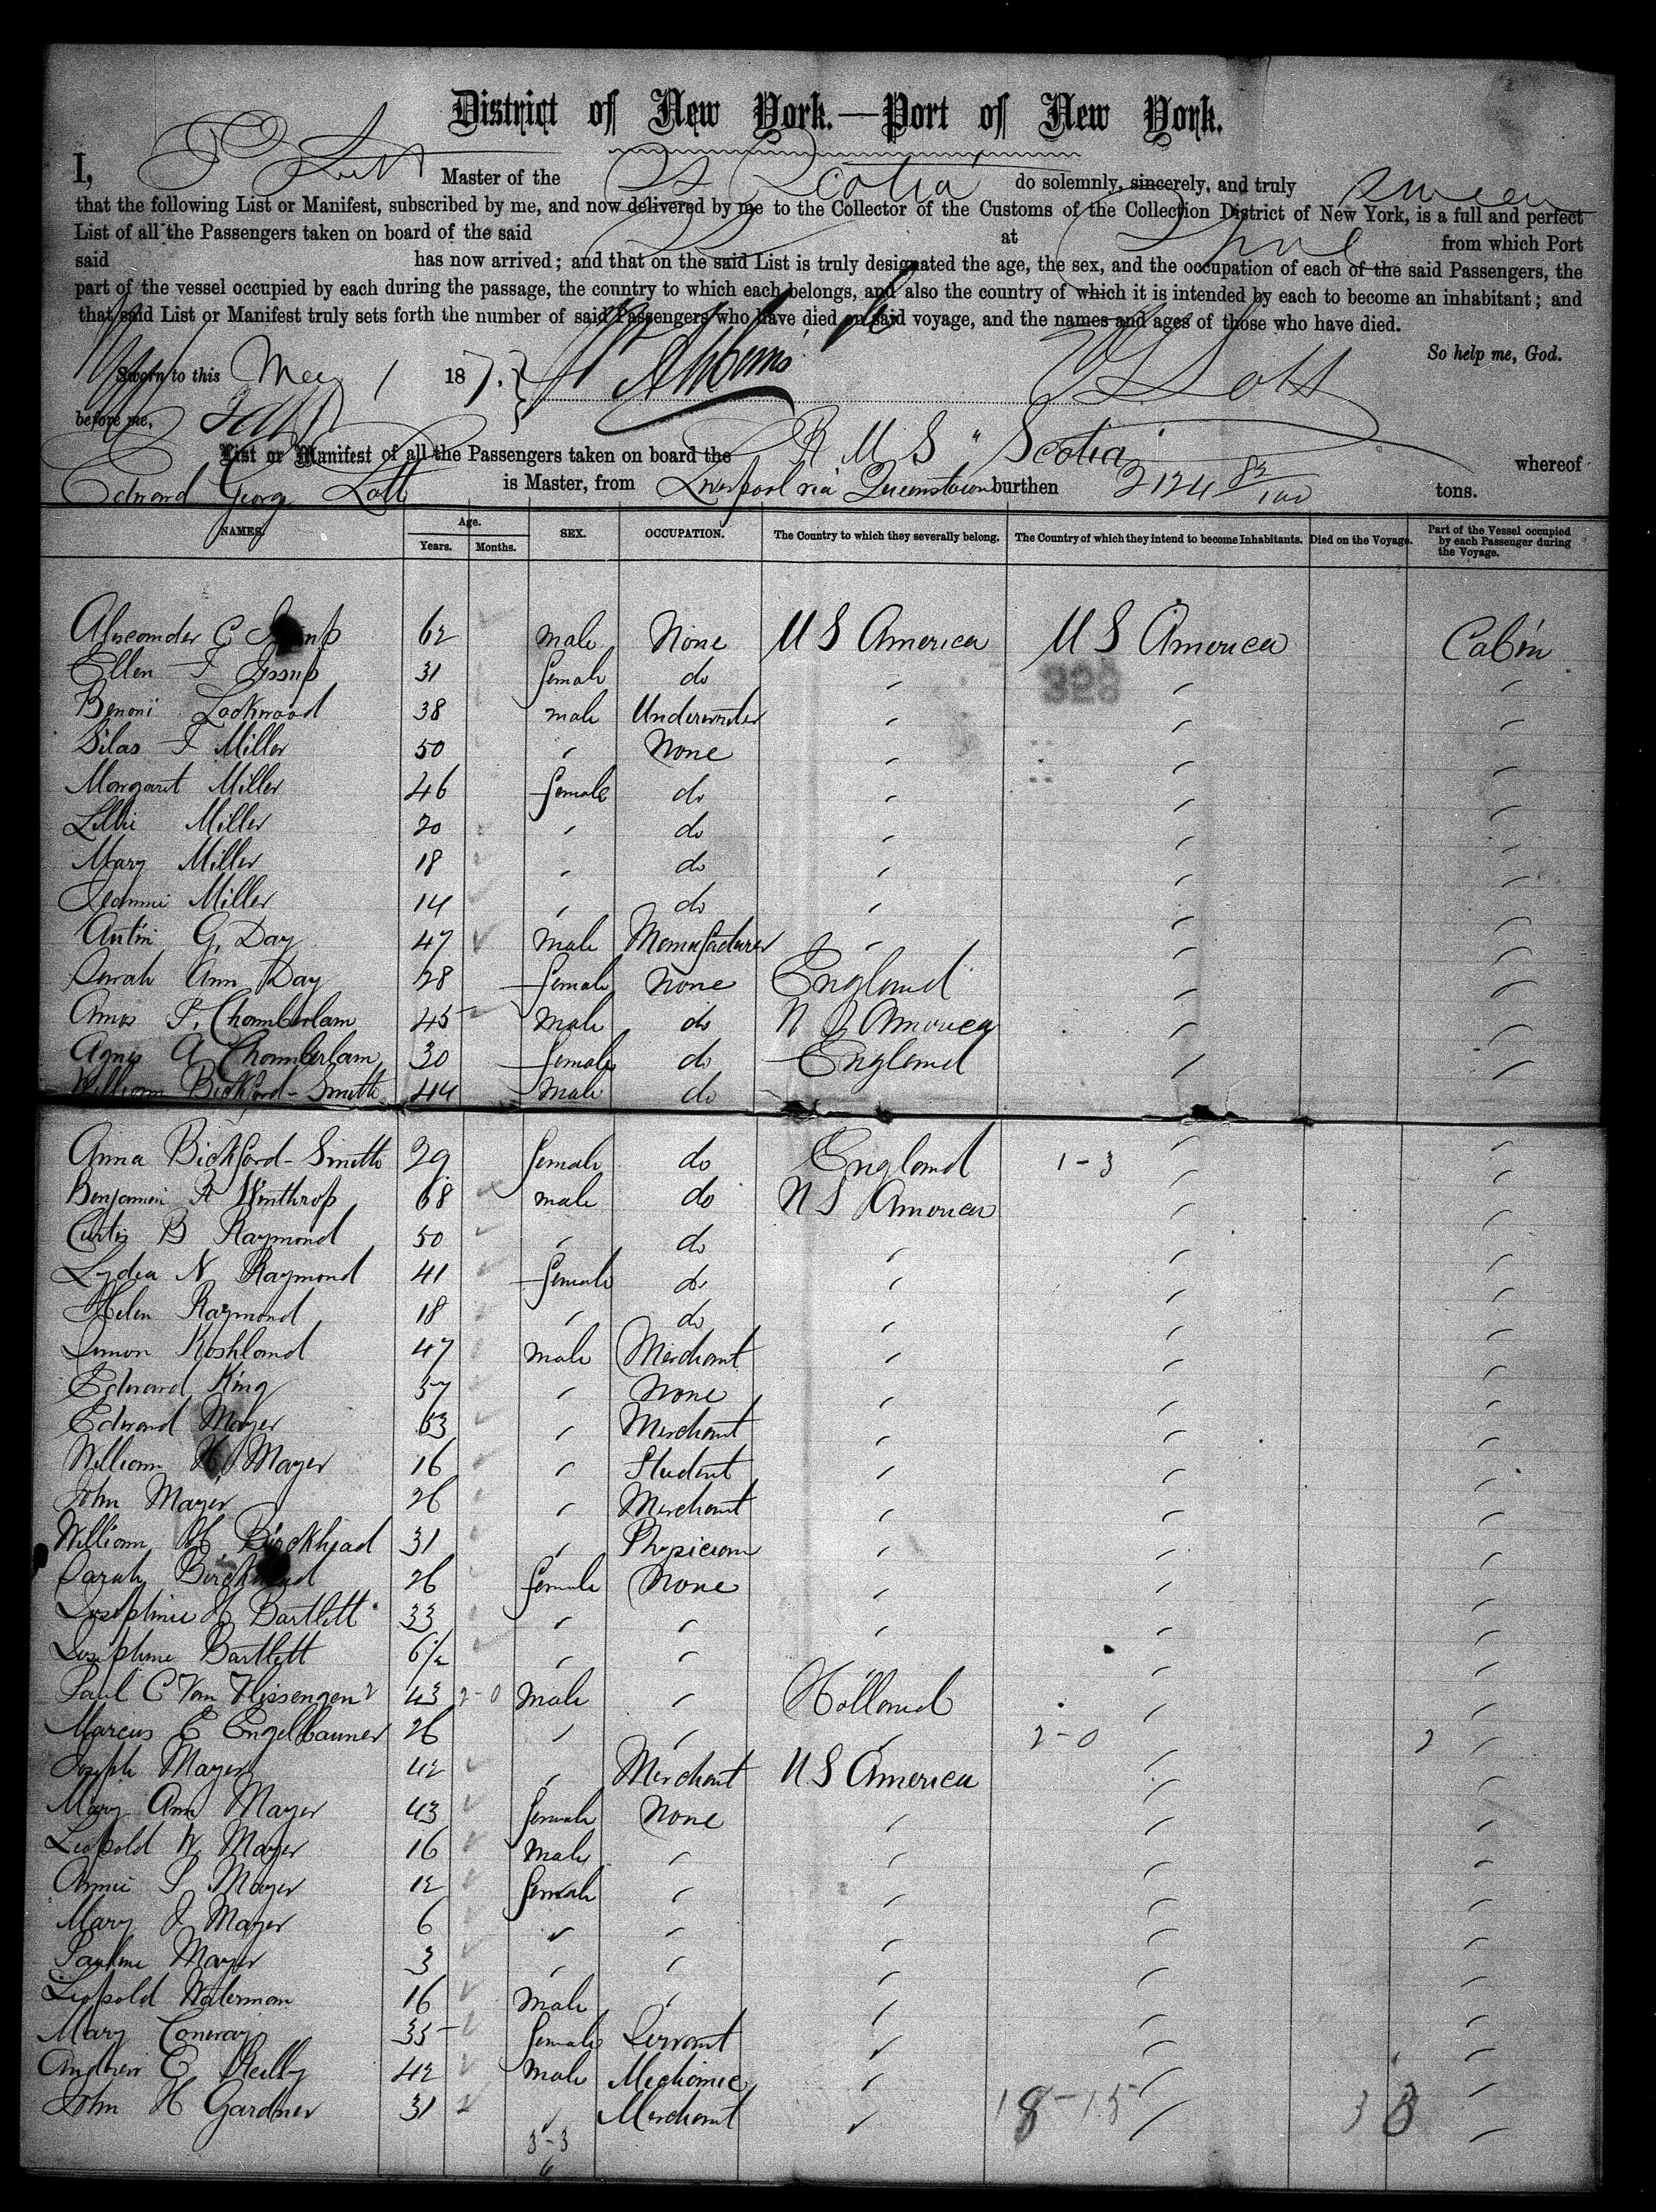 District of New York.—Port of New York.
I, Master of the SS Scotia do solemnly, sincerely, and truly swear
that the following List or Manifest, subscribed by me, and now delivered by me to the Collector of the Customs of the Collection District of New York, is a full and perfect
List of all the Passengers taken on board of the said at Lpool from which Port
said has now arrived; and that on the said List is truly designated the age, the sex, and the occupation of each of the said Passengers, the
part of the vessel occupied by each during the passage, the country to which each belongs, and also the country of which it is intended by each to become an inhabitant; and
that said List or Manifest truly sets forth the number of said Passengers who have died on said voyage, and the names and ages of those who have died.
So help me, God.
Sworn to this May 1 187 . } E G Lott
before me,
List or Manifest of all the Passengers taken on board the R M S "Scotia" whereof
Edward George Lott is Master, from Liverpool via Queenstown burthen 2124 82/100 tons.
NAMES. Age. Years. Months. SEX. OCCUPATION. The Country to which they severally belong. The Country of which they intend to become Inhabitants. Died on the Voyage. Part of the Vessel occupied by each Passenger during the Voyage.
Alexander C 62 male None U S America U S America Cabin
Ellen F Jessup 31 female do " " "
Benoni Lockwood 38 male Underwriter " " "
Silas F Miller 50 " None " " "
Margaret Miller 46 female do " " "
Lillie Miller 20 " do " " "
Mary Miller 18 " do " " "
Jeannie Miller 14 " do " " "
Austin G. Day 47 male Manufacturer " " "
Sarah Ann Day 28 female None England " "
Amos F. Chamberlain 45 male do U S America " "
Agnes A Chamberlain 30 female do England " "
William Bickford-Smith 44 male do
Anna Bickford-Smith 29 female do England 1-3 " "
Benjamin R Winthrop 68 male do U S America " "
Curtis B Raymond 50 " do " " "
Lydia N Raymond 41 female do " " "
Helen Raymond 18 " do " " "
Simon Koshland 47 male Merchant " " "
Edward King 57 " None " " "
Edward Mayer 53 " Merchant " " "
William H. Mayer 16 " Student " " "
John Mayer 26 " Merchant " " "
William H. Birckhead 31 " Physician " " "
Sarah Birckhead 26 female None " " "
Josephine H Bartlett 33 " " " " "
Josephine Bartlett 6½ " " " " "
Paul C Van Vlissengen 43 2-0 male " Holland " "
Marcus E Engelbauner 26 " " " 2-0 " 2 "
Joseph Mayer 42 " Merchant U S America " "
Mary Ann Mayer 43 female None " " "
Leopold W. Mayer 16 male " " " "
Annie S Mayer 12 female " " " "
Mary J Mayer 6 " " " " "
Pauline Mayer 3 " " " " "
Leopold Waterman 16 male " " " "
Mary Conway 35 female Servant " " "
Andrew E Reilly 42 male Mechanic " " "
John H Gardner 31 " Merchant " 18-15 " 38 "
3-3
6